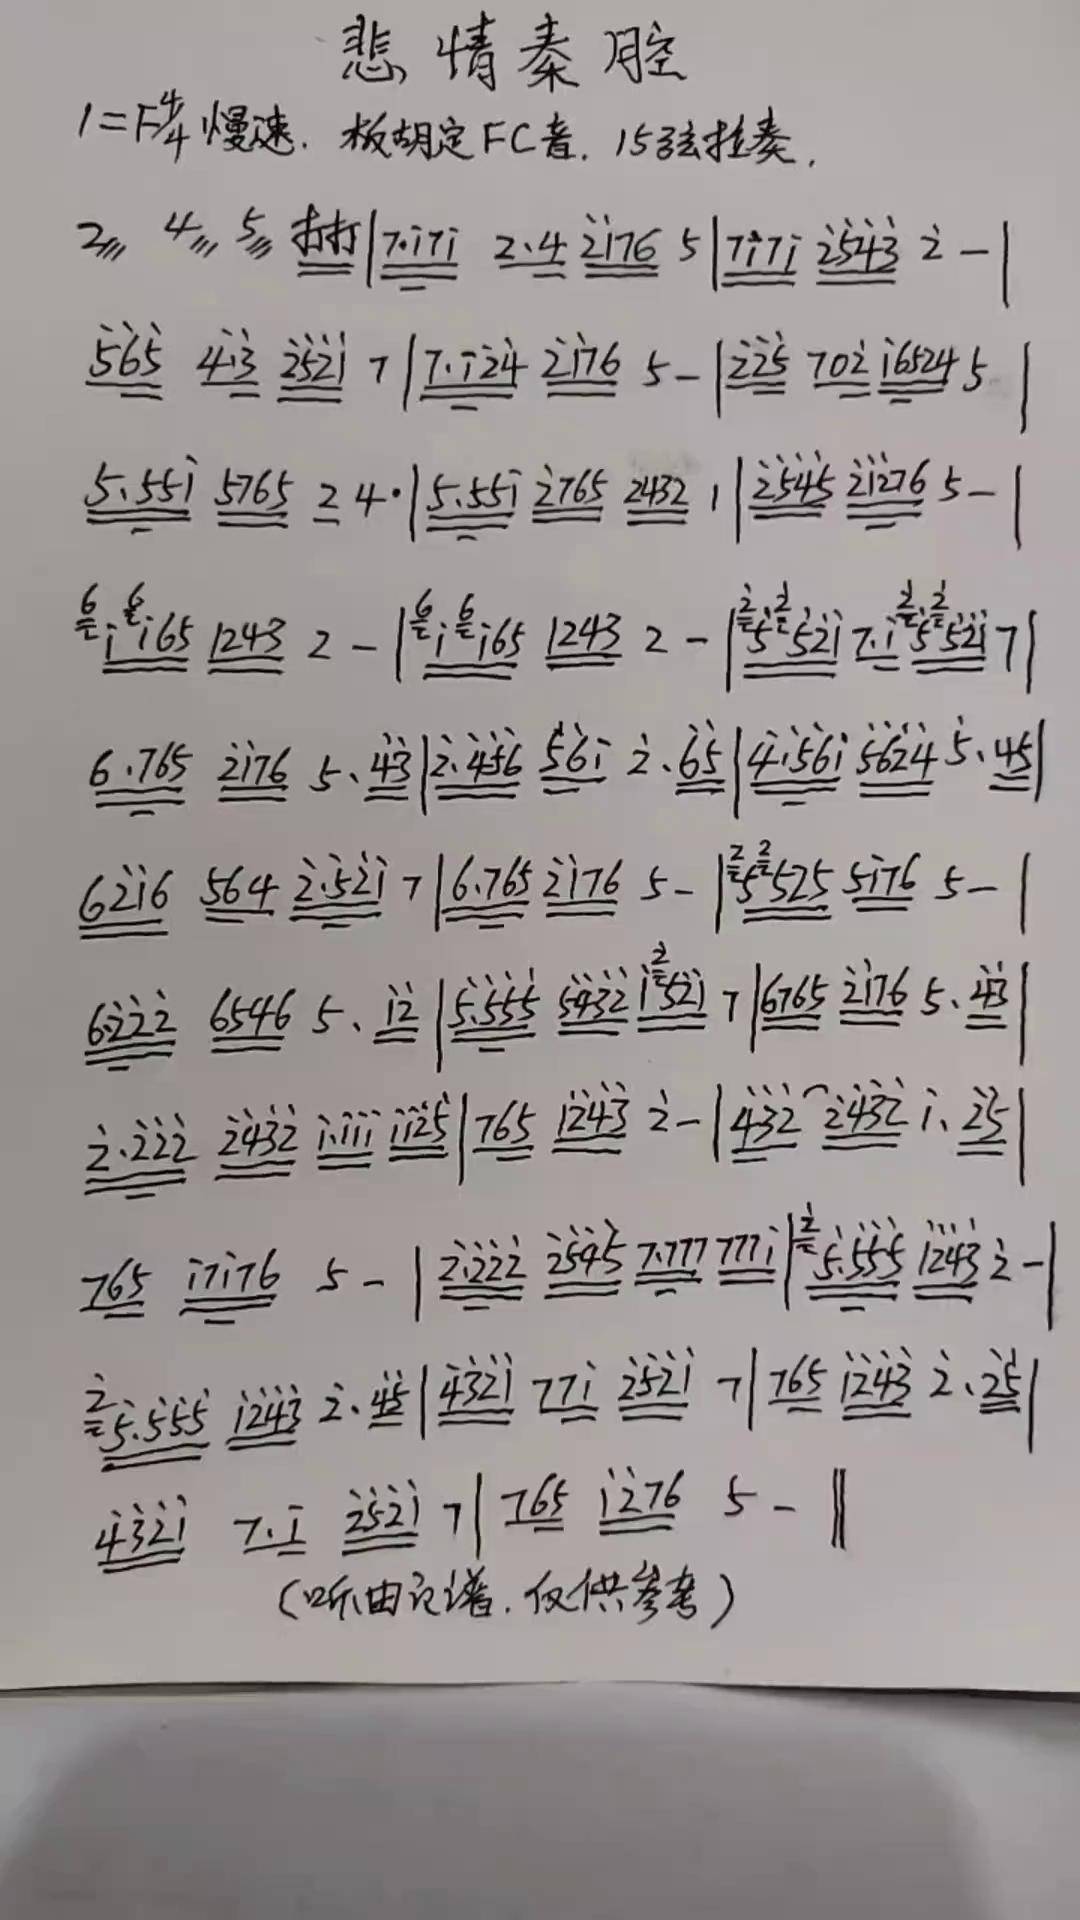 悲情秦腔
1=F4/4慢速. 板胡定FC音. 15弦拉奏.
2 4 5 打打|7·i̇7i̇ 2·4 2̇i̇76 5|7i̇7i̇ 2̇5̇4̇3̇ 2̇ -|
5̇6̇5̇ 4̇·3̇ 2̇5̇2̇i̇ 7|7·i̇2̇4̇ 2̇i̇76 5-|2̇2̇5̇ 702̇ i̇6524 5|
5·55i̇ 5765 2 4·|5·55i̇ 2̇765 2432 1|2̇5̇4̇5̇ 2̇i̇2̇76 5-|
6i̇ 6i̇65 1243 2 -|6i̇ 6i̇65 1243 2 -|2̇5̇ 2̇5̇2̇i̇ 7·i̇ 2̇5̇ 2̇5̇2̇i̇ 7|
6·765 2̇i̇76 5·4̇3̇|2̇·4̇5̇6̇ 5̇6̇i̇ 2̇·6̇5̇|4̇·5̇6̇i̇ 5̇6̇2̇4̇ 5̇·4̇5̇|
62̇i̇6 564 2̇·5̇2̇i̇ 7|6·765 2̇i̇76 5-|25 2525 5i̇76 5-|
6·2̇2̇2̇ 6546 5·i̇2̇|5̇·5̇5̇5̇ 5̇4̇3̇2̇ i̇2̇5̇2̇i̇ 7|6765 2̇i̇76 5·4̇3̇|
2̇·2̇2̇2̇ 2̇4̇3̇2̇ i̇·i̇i̇i̇ i̇i̇2̇5̇|765 i̇2̇4̇3̇ 2̇-|4̇3̇2̇ 2̇4̇3̇2̇ i̇·2̇5̇|
765 i̇7i̇76 5-|2̇·2̇2̇2̇ 2̇5̇4̇5̇ 7·777 777i̇|2̇5̇·5̇5̇5̇ i̇2̇4̇3̇ 2̇-|
2̇5̇·5̇5̇5̇ i̇2̇4̇3̇ 2̇·4̇5̇|4̇3̇2̇i̇ 77i̇ 2̇5̇2̇i̇ 7|765 i̇2̇4̇3̇ 2̇·2̇5̇|
4̇3̇2̇i̇ 7·i̇ 2̇5̇2̇i̇ 7|765 i̇2̇76 5-‖
(听曲记谱.仅供参考)